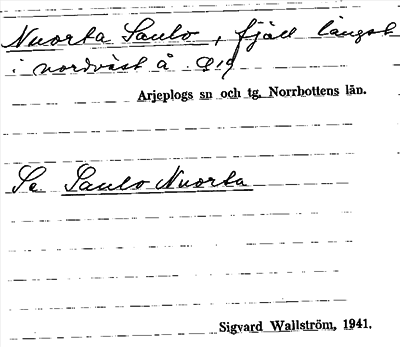 Nuorta Saulo, fjäll längst
i nordväst å D19
Arjeplogs sn och tg. Norrbottens län.
Se Saulo Nuorta
Sigvard Wallström, 1941.